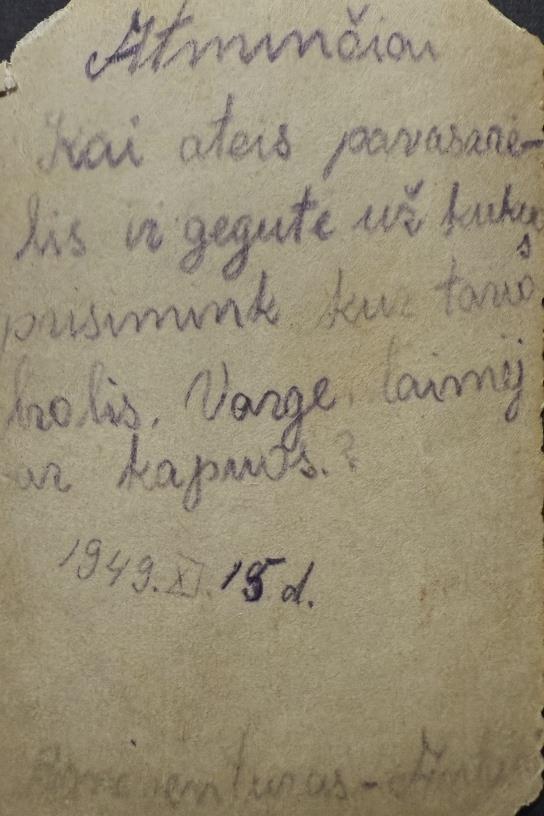 Atminčiai
Kai ateis pavasarė-
lis ir gegutė už kukus
prisimink kur tavo
brolis. Varge, laimėj
ar kapuos.?
1949.XI.15 d.